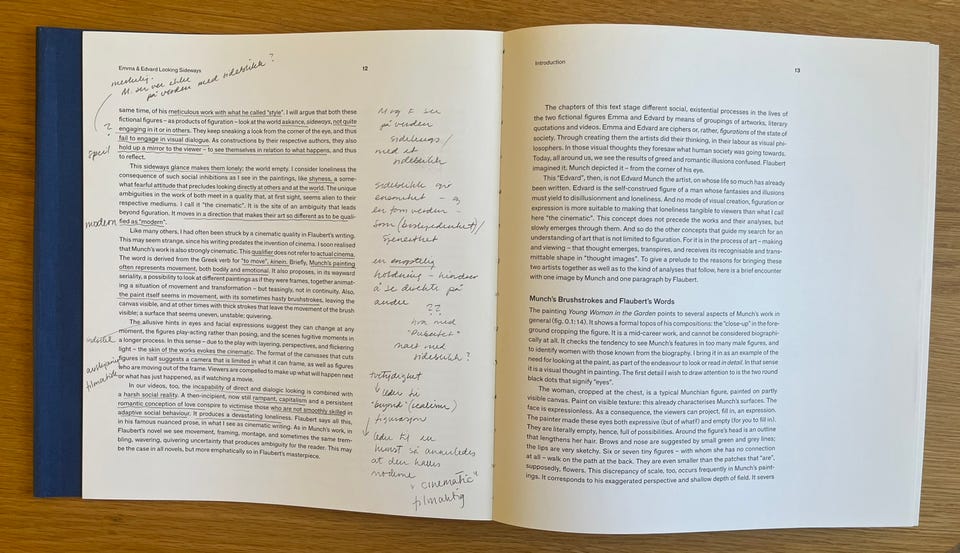 Emma & Edvard Looking Sideways
12
M. ser
på verden med sideblikk ?
same time, of his meticulous work with what he called "style". I will argue that both these
fictional figures – as products of figuration – look at the world askance, sideways, not quite
engaging in it or in others. They keep sneaking a look from the corner of the eye, and thus
fail to engage in visual dialogue. As constructions by their respective authors, they also
hold up a mirror to the viewer – to see themselves in relation to what happens, and thus
to reflect.
This sideways glance makes them lonely; the world empty. I consider loneliness the
consequence of such social inhibitions as I see in the paintings, like shyness, a some-
what fearful attitude that precludes looking directly at others and at the world. The unique
ambiguities in the work of both meet in a quality that, at first sight, seems alien to their
respective mediums. I call it "the cinematic". It is the site of an ambiguity that leads
beyond figuration. It moves in a direction that makes art so different as to be quali-
fied as "modern".
Like many others, I had often been struck by a cinematic quality in Flaubert's writing.
This may seem strange, since his writing predates the invention of cinema. I soon realised
that Munch's work is also strongly cinematic. This qualifier does not refer to actual cinema.
The word is derived from the Greek verb for "to move", kinein. Briefly, Munch's painting
often represents movement, both bodily and emotional. It also proposes, in its wayward
seriality, a possibility to look at different paintings as if they were frames, together animat-
ing a situation of movement and transformation – but teasingly, not in continuity. Also,
the paint itself seems in movement, with its sometimes hasty brushstrokes, leaving the
canvas visible, and at other times with thick strokes that leave the movement of the brush
visible; a surface that seems uneven, unstable; quivering.
The allusive hints in eyes and facial expressions suggest they can change at any
moment, the figures play-acting rather than posing, and the scenes fugitive moments in
a longer process. In this sense – due to the play with layering, perspectives, and flickering
light – the skin of the works evokes the cinematic. The format of the canvases that cuts
figures in half suggests a camera that is limited in what it can frame, as well as figures
who are moving out of the frame. Viewers are compelled to make up what will happen next
or what has just happened, as if watching a movie.
In our videos, too, the incapability of direct and dialogic looking is combined with
a harsh social reality. A then-incipient, now still rampant, capitalism and a persistent
romantic conception of love conspire to victimise those who are not smoothly skilled in
adaptive social behaviour. It produces a devastating loneliness. Flaubert says all this,
in his famous nuanced prose, in what I see as cinematic writing. As in Munch's work, in
Flaubert's novel we see movement, framing, montage, and sometimes the same trem-
bling, wavering, quivering uncertainty that produces ambiguity for the reader. This may
be the case in all novels, but more emphatically so in Flaubert's masterpiece.
?
speil
modern
filmatisk
M og E ser
på verden
sidelengs /
med et
sideblikk
sideblikk gir
ensomhet – og
en tom verden –
som
sjenerthet
en engstelig
holdning – hindrer
å se direkte på
andre
??
hva med
"Pubertet"
med
sideblikk ?
tvetydighet
leder til
figurasjon
leder til en
kunst så annerledes
at den kalles
moderne
"cinematic"
filmaktig
Introduction
13
The chapters of this text stage different social, existential processes in the lives of
the two fictional figures Emma and Edvard by means of groupings of artworks, literary
quotations and videos. Emma and Edvard are ciphers or, rather, figurations of the state of
society. Through creating them the artists did their thinking, in their labour as visual phi-
losophers. In those visual thoughts they foresaw what human society was going towards.
Today, all around us, we see the results of greed and romantic illusions confused. Flaubert
imagined it. Munch depicted it – from the corner of his eye.
This "Edvard", then, is not Edvard Munch the artist, on whose life so much has already
been written. Edvard is the self-construed figure of a man whose fantasies and illusions
must yield to disillusionment and loneliness. And no mode of visual creation, figuration or
expression is more suitable to making that loneliness tangible to viewers than what I call
here "the cinematic". This concept does not precede the works and their analyses, but
slowly emerges through them. And so do the other concepts that guide my search for an
understanding of art that is not limited to figuration. For it is in the process of art – making
and viewing – that thought emerges, transpires, and receives its recognisable and trans-
mittable shape in "thought images". To give a prelude to the reasons for bringing these
two artists together as well as to the kind of analyses that follow, here is a brief encounter
with one image by Munch and one paragraph by Flaubert.
Munch's Brushstrokes and Flaubert's Words
The painting Young Woman in the Garden points to several aspects of Munch's work in
general (fig. 0.1: 14). It shows a formal topos of his compositions: the "close-up" in the fore-
ground cropping the figure. It is a mid-career work, and cannot be considered biographi-
cally at all. It checks the tendency to see Munch's features in too many male figures, and
to identify women with those known from the biography. I bring it in as an example of the
need for looking at the paint, as part of the endeavour to look or read in detail. In that sense
it is a visual thought in painting. The first detail I wish to draw attention to is the two round
black dots that signify "eyes".
The woman, cropped at the chest, is a typical Munchian figure, painted on partly
visible canvas. Paint on visible texture: this already characterises Munch's surfaces. The
face is expressionless. As a consequence, the viewers can project, fill in, an expression.
The painter made these eyes both expressive (but of what?) and empty (for you to fill in).
They are literally empty, hence, full of possibilities. Around the figure's head is an outline
that lengthens her hair. Brows and nose are suggested by small green and grey lines;
the lips are very sketchy. Six or seven tiny figures – with whom she has no connection
at all – walk on the path at the back. They are even smaller than the patches that "are",
supposedly, flowers. This discrepancy of scale, too, occurs frequently in Munch's paint-
ings. It corresponds to his exaggerated perspective and shallow depth of field. It severs